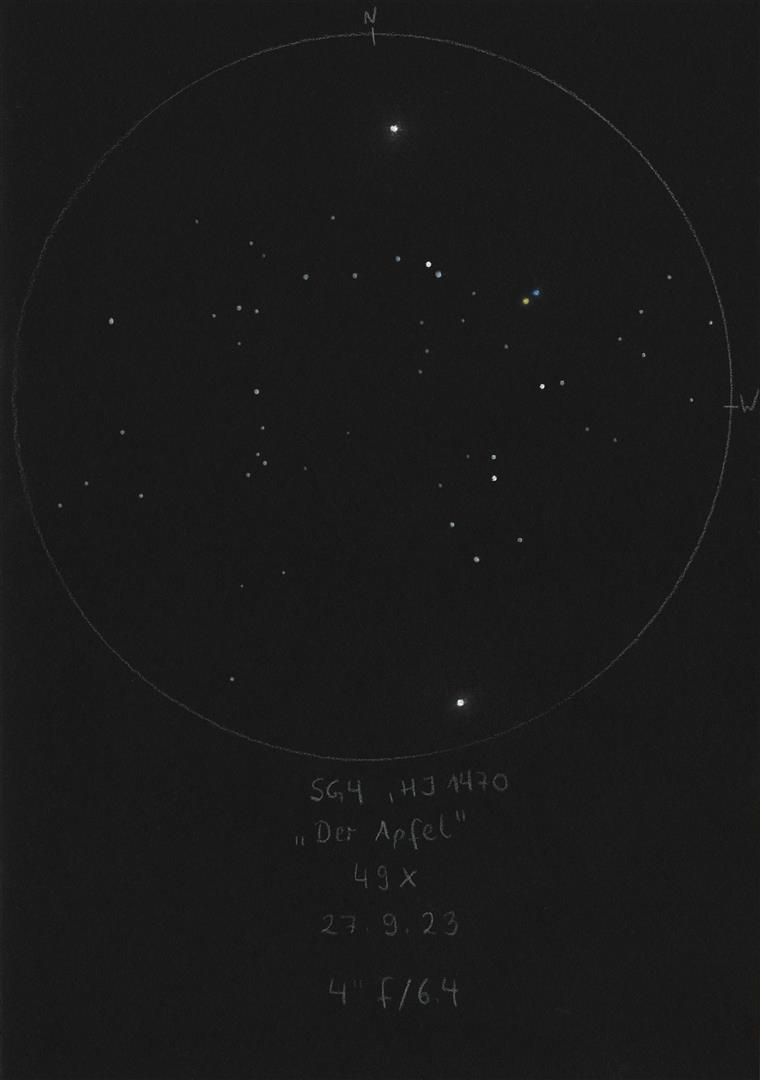 N
W
SG4, HJ 1470
„Der Apfel"
49x
27.9.23
4" f/6.4